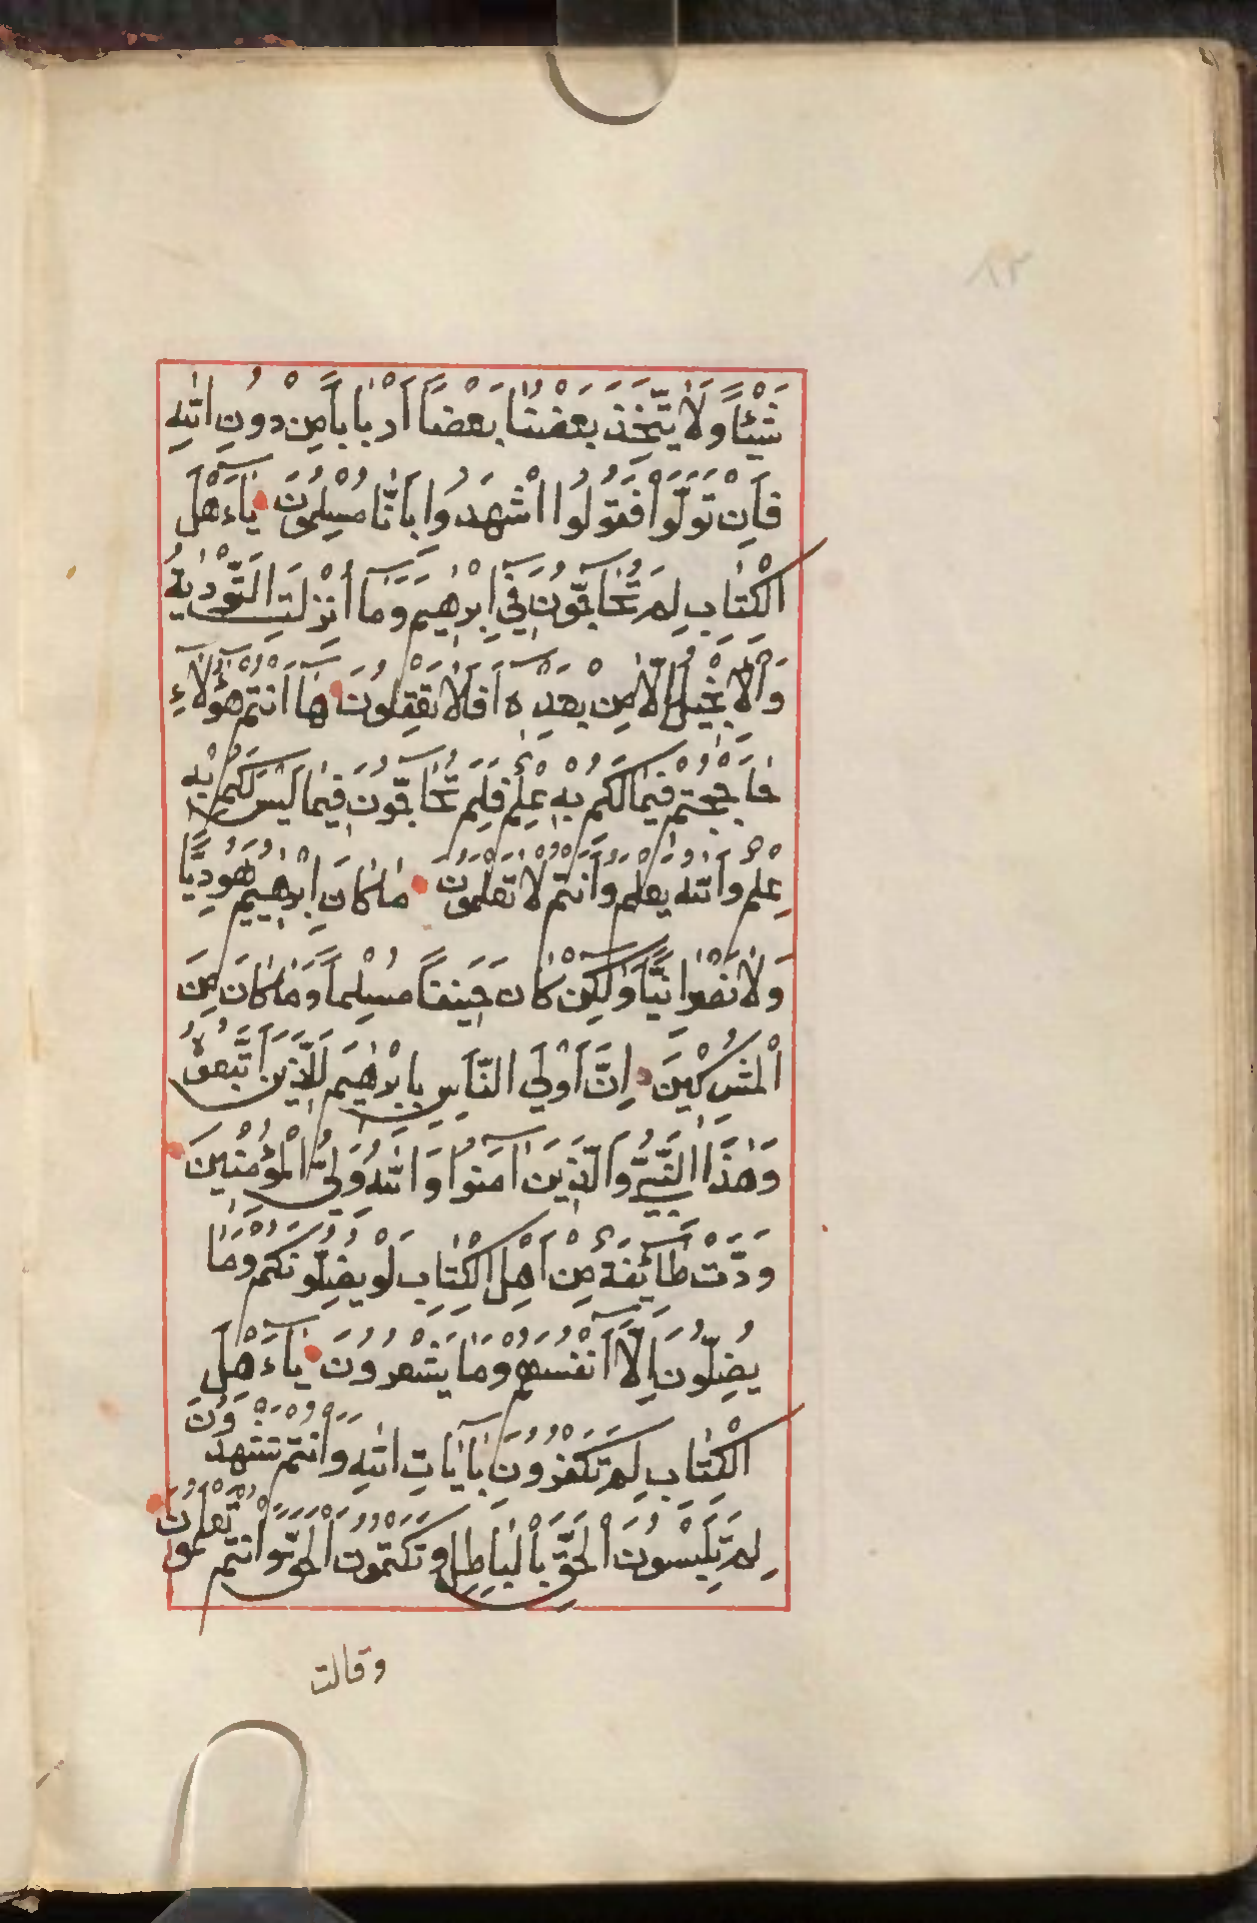 شَيْئاً وَلَا يَتَّخِذَ بَعْضُنَا بَعْضاً أَرْبَاباً مِنْ دُونِ اللّٰهِ
فَاِنْ تَوَلَّوْا فَقُولُوا اشْهَدُوا بِاَنَّا مُسْلِمُونَ يَاءَهْلَ
الْكِتَابِ لِمَ تُحَاجُّونَ فِي اِبْرٰهِيمَ وَمَا اُنْزِلَتِ التَّوْرٰيةُ
وَالْاِنْجِيلُ اِلَّا مِنْ بَعْدِهِ اَفَلَا تَعْقِلُونَ هَا اَنْتُمْ هٰؤُلَاءِ
حَاجَجْتُمْ فِيمَا لَكُمْ بِهِ عِلْمٌ فَلِمَ تُحَاجُّونَ فِيمَا لَيْسَ لَكُمْ بِهِ
عِلْمٌ وَاللّٰهُ يَعْلَمُ وَاَنْتُمْ لَا تَعْلَمُونَ مَا كَانَ اِبْرٰهِيمُ يَهُودِيًّا
وَلَا نَصْرَانِيًّا وَلٰكِنْ كَانَ حَنِيفاً مُسْلِماً وَمَا كَانَ مِنَ
الْمُشْرِكِينَ اِنَّ اَوْلَى النَّاسِ بِاِبْرٰهِيمَ لَلَّذِينَ اتَّبَعُوهُ
وَهٰذَا النَّبِيُّ وَالَّذِينَ اٰمَنُوا وَاللّٰهُ وَلِيُّ الْمُؤْمِنِينَ
وَدَّتْ طَائِفَةٌ مِنْ اَهْلِ الْكِتَابِ لَوْ يُضِلُّونَكُمْ وَمَا
يُضِلُّونَ اِلَّا اَنْفُسَهُمْ وَمَا يَشْعُرُونَ يَاءَهْلَ
الْكِتَابِ لِمَ تَكْفُرُونَ بِاٰيَاتِ اللّٰهِ وَاَنْتُمْ تَشْهَدُونَ
لِمَ تَلْبِسُونَ الْحَقَّ بِالْبَاطِلِ وَتَكْتُمُونَ الْحَقَّ وَاَنْتُمْ تَعْلَمُونَ
وقالت